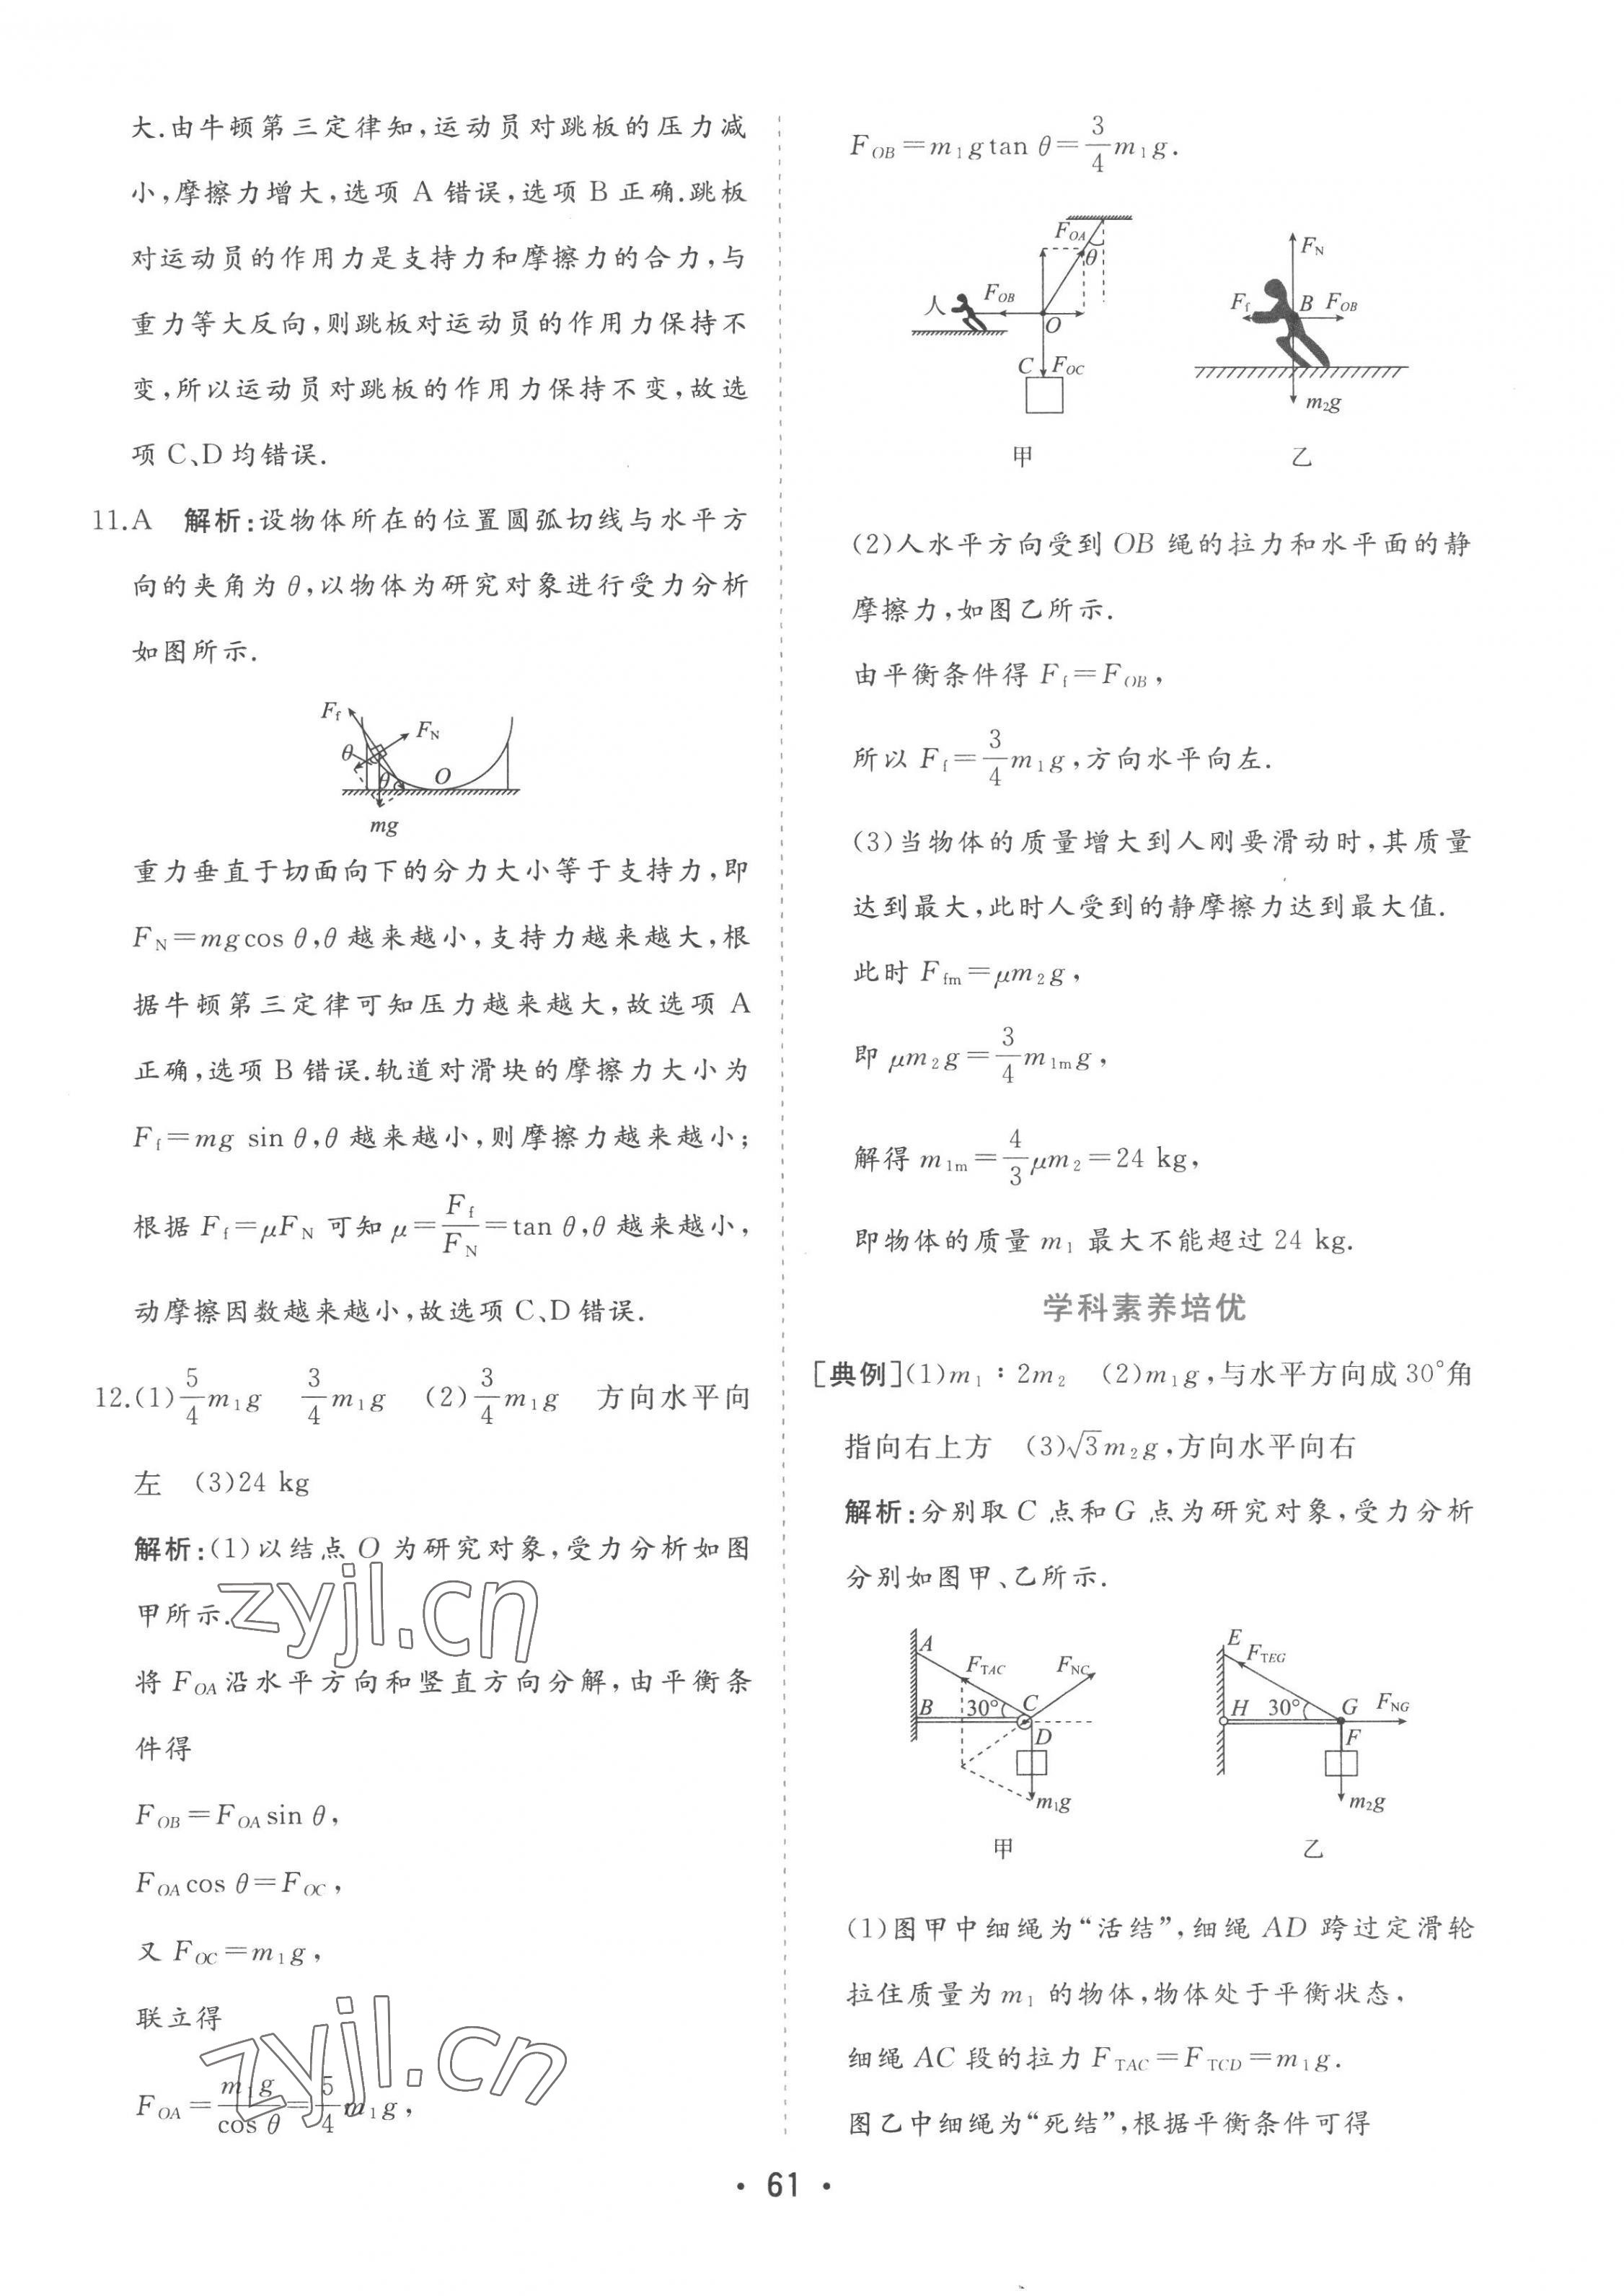 大.由牛顿第三定律知,运动员对跳板的压力减
小,摩擦力增大,选项 A 错误,选项 B 正确.跳板
对运动员的作用力是支持力和摩擦力的合力,与
重力等大反向,则跳板对运动员的作用力保持不
变,所以运动员对跳板的作用力保持不变,故选
项 C、D 均错误.
11.A 解析:设物体所在的位置圆弧切线与水平方
向的夹角为 θ,以物体为研究对象进行受力分析
如图所示.
Ff
FN
θ
θ
O
mg
重力垂直于切面向下的分力大小等于支持力,即
FN=mgcos θ,θ 越来越小,支持力越来越大,根
据牛顿第三定律可知压力越来越大,故选项 A
正确,选项 B 错误.轨道对滑块的摩擦力大小为
Ff=mg sin θ,θ 越来越小,则摩擦力越来越小;
根据 Ff=μFN 可知 μ=Ff/FN=tan θ,θ 越来越小,
动摩擦因数越来越小,故选项 C、D 错误.
12.(1)5/4 m1g 3/4 m1g (2)3/4 m1g 方向水平向
左 (3)24 kg
解析:(1)以结点 O 为研究对象,受力分析如图
甲所示.
zyjl.cn
将 FOA 沿水平方向和竖直方向分解,由平衡条
件得
FOB=FOA sin θ,
FOA cos θ=FOC,
又 FOC=m1g,
联立得
zyjl.cn
FOA=m1g/cos θ=5/4 m1g,
FOB=m1gtan θ=3/4 m1g.
FOA
θ
人
FOB
O
C
FOC
甲
FN
Ff
B
FOB
m2g
乙
(2)人水平方向受到 OB 绳的拉力和水平面的静
摩擦力,如图乙所示.
由平衡条件得 Ff=FOB,
所以 Ff=3/4 m1g,方向水平向左.
(3)当物体的质量增大到人刚要滑动时,其质量
达到最大,此时人受到的静摩擦力达到最大值.
此时 Ffm=μm2g,
即 μm2g=3/4 m1mg,
解得 m1m=4/3 μm2=24 kg,
即物体的质量 m1 最大不能超过 24 kg.
学科素养培优
[典例](1)m1∶2m2 (2)m1g,与水平方向成 30°角
指向右上方 (3)√3m2g,方向水平向右
解析:分别取 C 点和 G 点为研究对象,受力分析
分别如图甲、乙所示.
A
FTAC
FNC
B
30°
C
D
m1g
甲
E
FTEG
H
30°
G
FNG
F
m2g
乙
(1)图甲中细绳为“活结”,细绳 AD 跨过定滑轮
拉住质量为 m1 的物体,物体处于平衡状态,
细绳 AC 段的拉力 FTAC=FTCD=m1g.
图乙中细绳为“死结”,根据平衡条件可得
· 61 ·